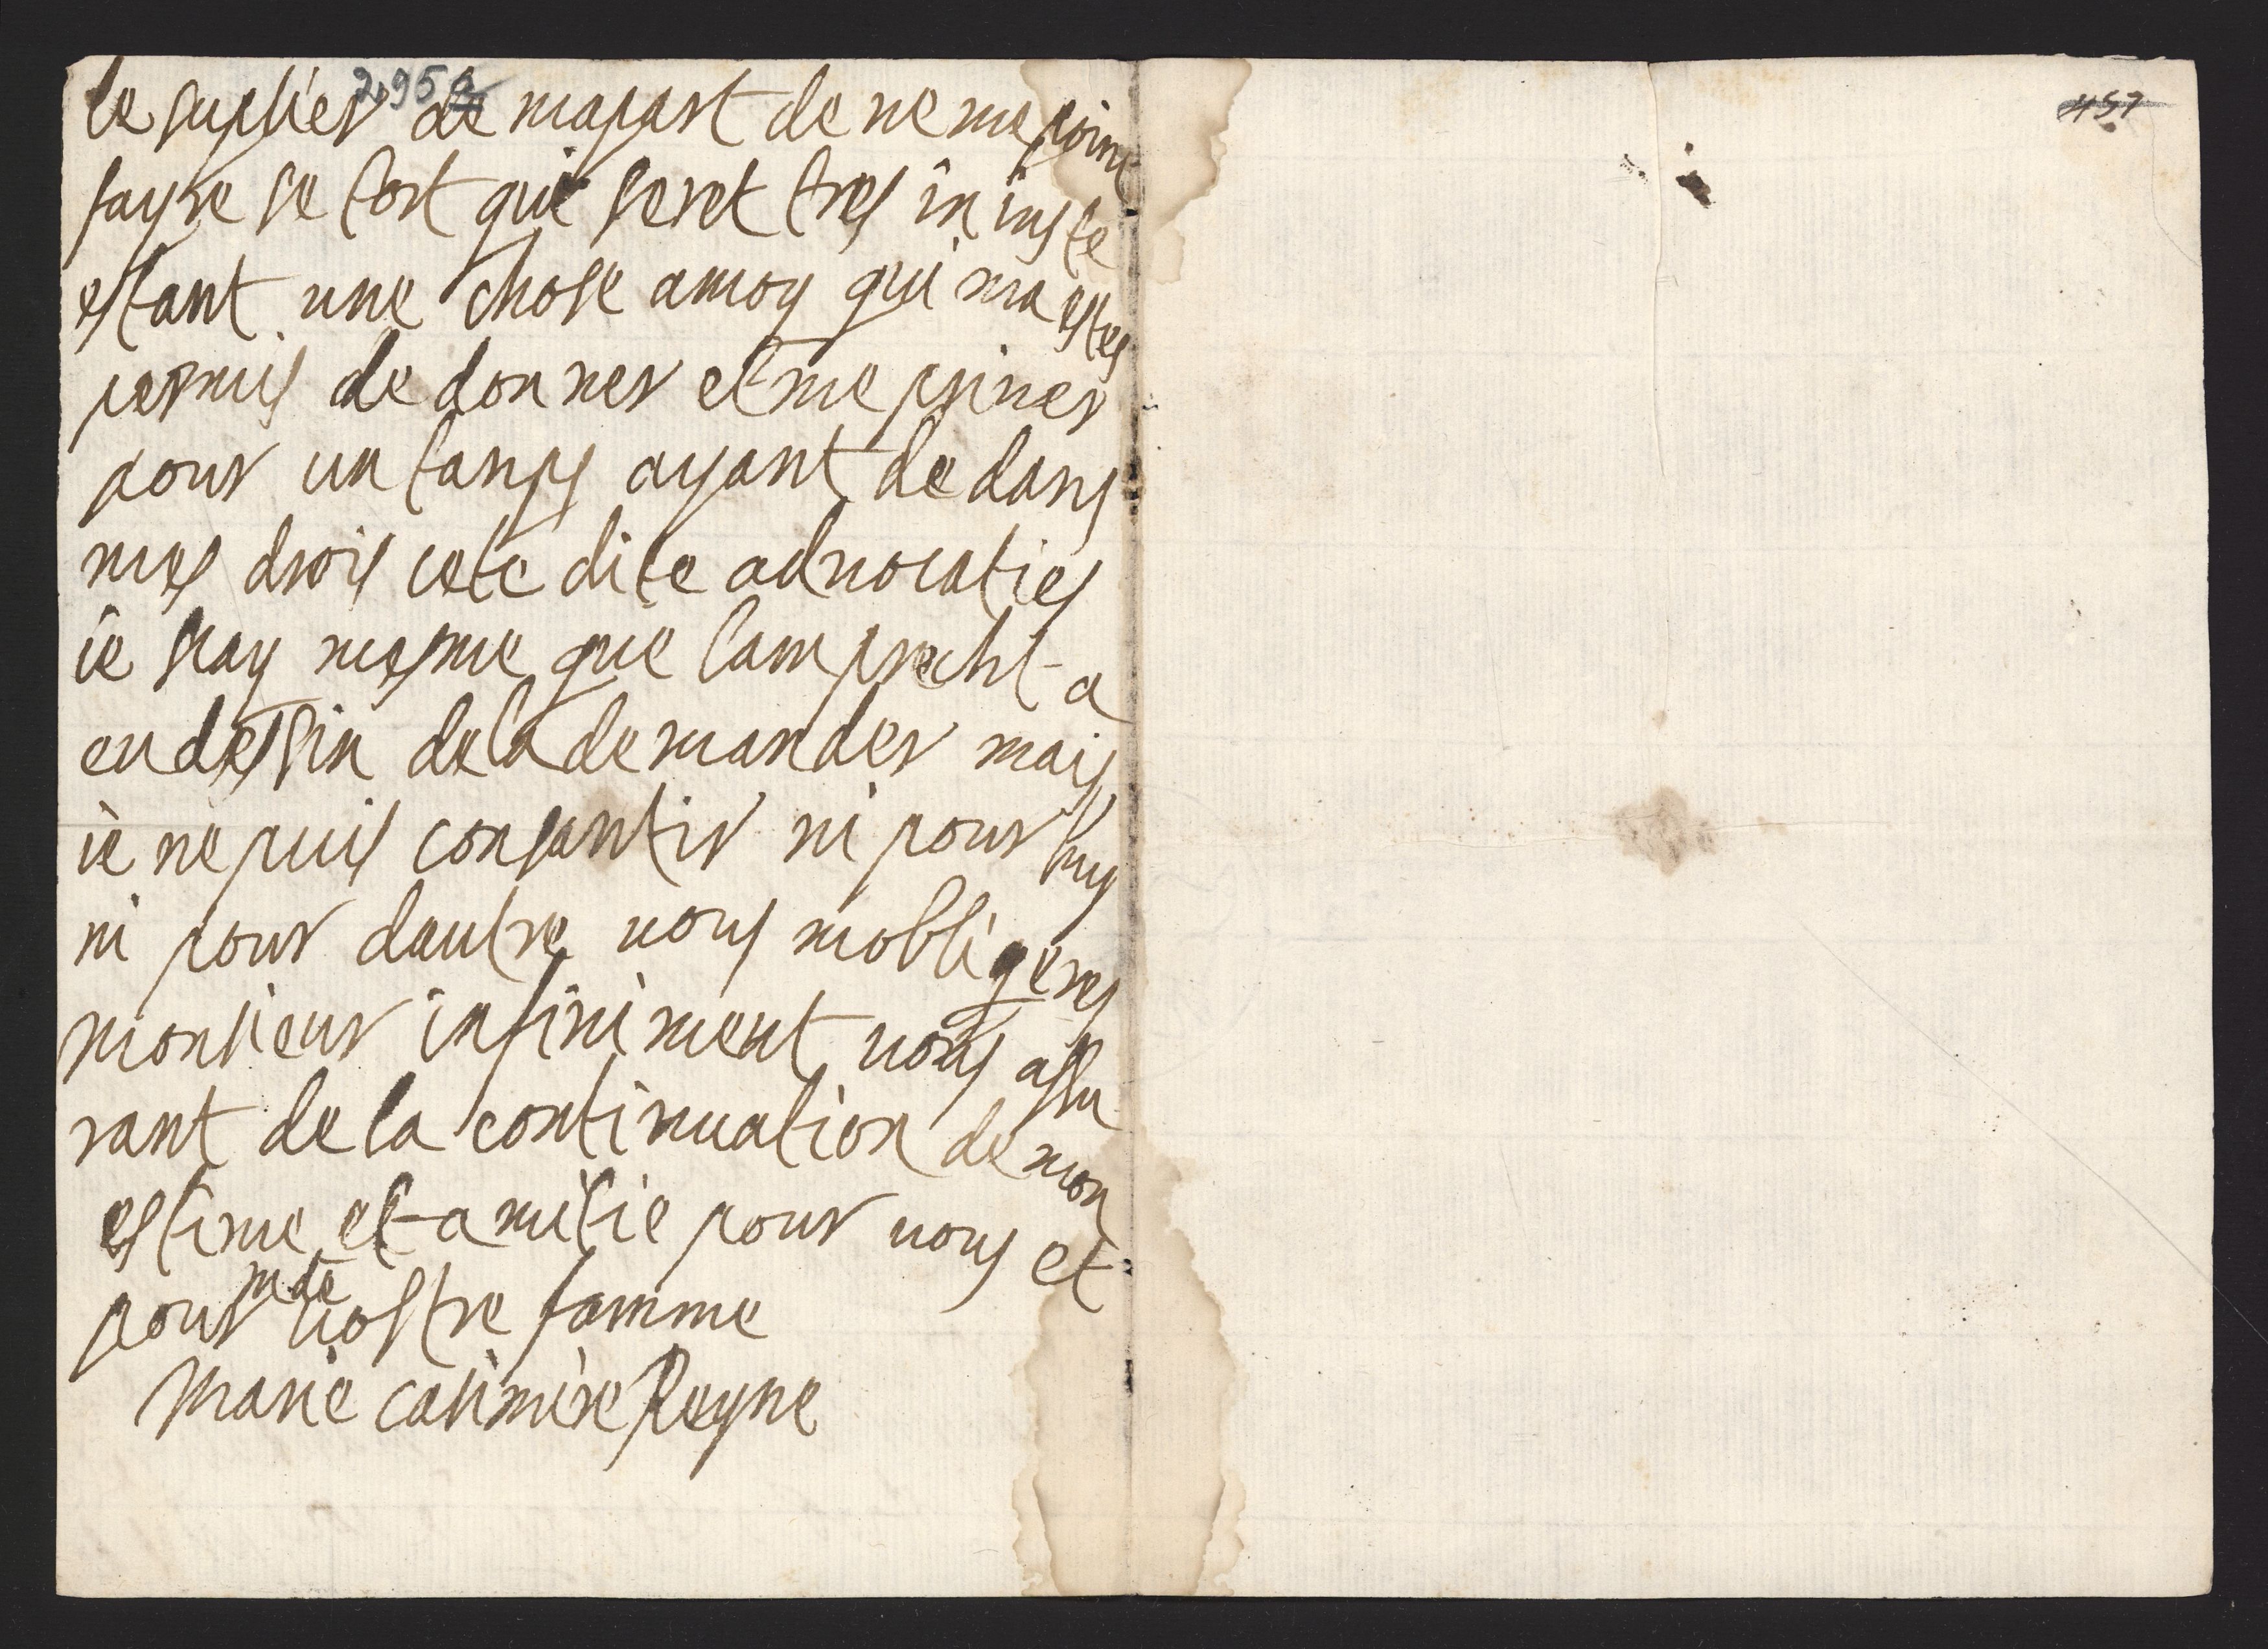 2,95 a
457
le suplier de mapart de ne me poin
fayre se tort qui seret tres in iuste
estant une chose amoy qui ma estes
permis de donner et me priver
pour un tanps ayant de dans
mes drois cete dite advocaties
ie scay mesme que lamprecht a
eu dessin dela demander mais
ie ne puis consantir ni pour luy
ni pour dautre vous mobligeres
monsieur infiniment vous assu
rant de la continuation de mon
estime et amitie pour vous et
pour mde vostre famme
Marie casimire Reyne